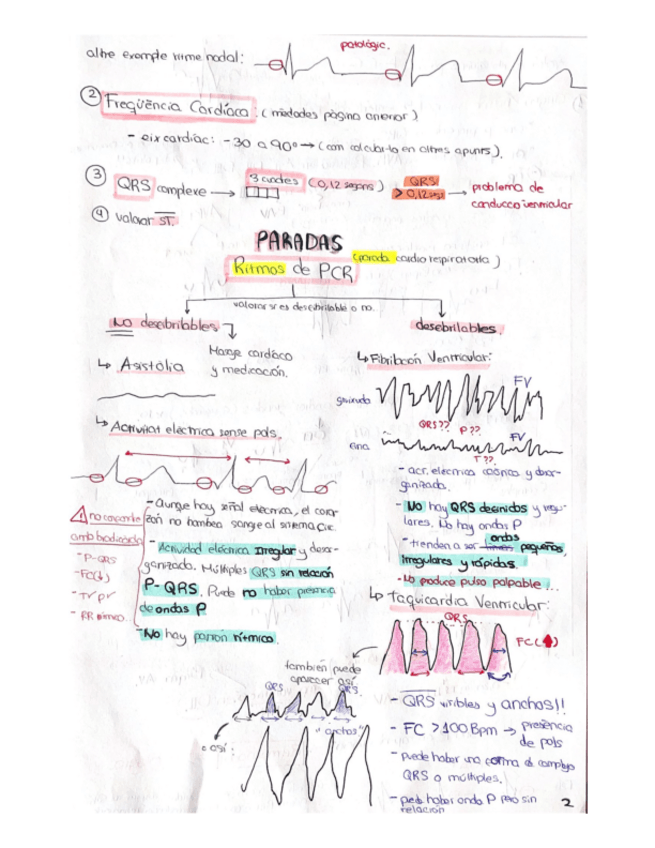 altre exemple ritme nodal:
patològic.
② Freqüència Cardíaca: (mètodes pàgina anterior)
- eix cardíac: -30 a 90º → (com calcular-lo en altres apunts).
③ QRS complexe → 3 quadres (0,12 segons)
QRS > 0,12 seg → problema de
conducció ventricular
④ valorar ST.
PARADAS
Ritmos de PCR (parada cardiorespiratoria)
valorar si es desebrilable o no.
NO desebrilables
Masaje cardíaco
y medicación.
↳ Asistòlia
↳ Activitat elèctrica sense pols.
⚠ no
amb
- P-QRS
- FC(↓)
- RR rítmico.
- Aunque hay señal eléctrica, el cora-
zón no bombea sangre al sistema circ.
- Actividad eléctrica Irregular y desor-
ganizada. Múltiples QRS sin relación
P-QRS. Puede no haber presencia
de ondas P
- No hay patrón rítmico.
desebrilables.
↳ Fibrilación Ventricular:
FV
QRS?? P??
fina
FV
T??
- act. eléctrica caótica y desor-
ganizada.
- No hay QRS definidos y regu-
lares. No hay ondas P
- tienden a ser ondas pequeños,
irregulares y rápidas.
- No produce pulso palpable...
↳ Taquicardia Ventricular:
QRS
FC(↑)
- QRS visibles y anchos!!
- FC > 100 Bpm → presencia
de pols
- puede haber una forma de complejo
QRS o múltiples.
- pueds haber onda P pero sin
relación
también puede
aparecer así
QRS QRS
"anchos"
o así:
2